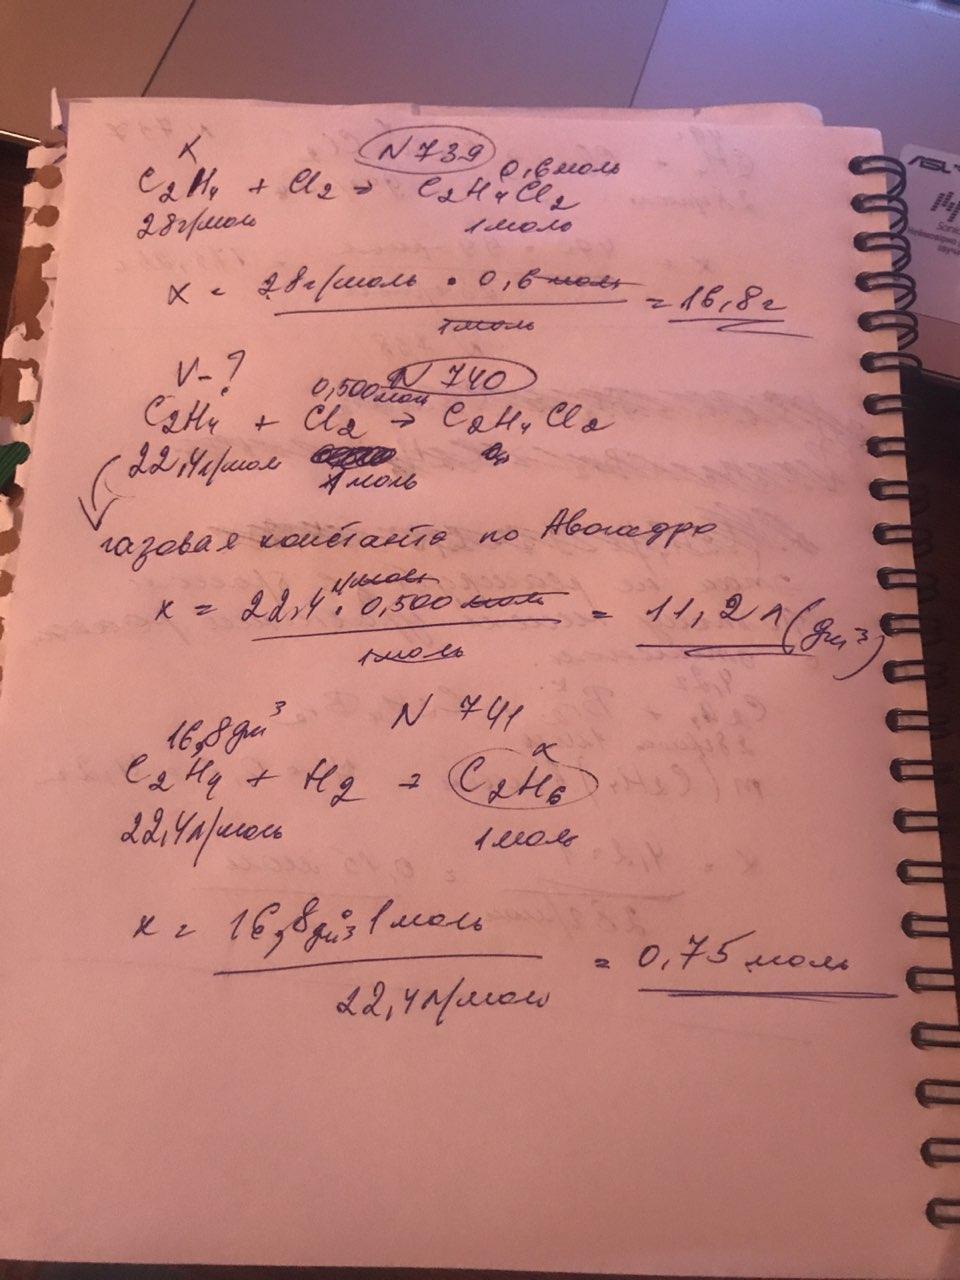 N 739
x
0,6 моль
C2H4 + Cl2 → C2H4Cl2
28г/моль 1моль
x = 28г/моль · 0,6 моль / 1моль = 16,8г
N 740
V-?
0,500моль
C2H4 + Cl2 → C2H4Cl2
22,4л/мол 1моль
газовая константа по Авогадро
x = 22,4 л/моль · 0,500 моль / 1моль = 11,2 л (дм³)
N 741
16,8дм³ x
C2H4 + H2 → C2H6
22,4л/моль 1моль
x = 16,8дм³ · 1моль / 22,4л/моль = 0,75 моль
ASUS